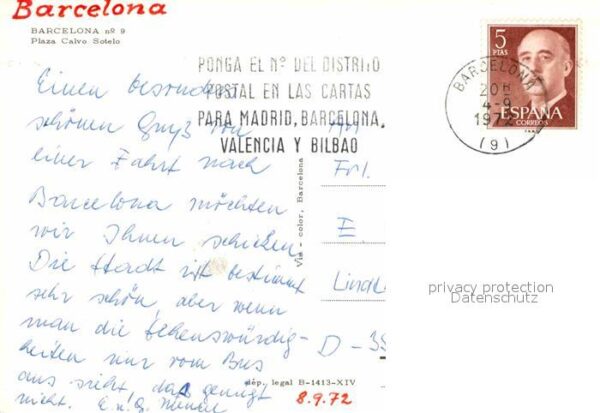 Barcelona
BARCELONA nº 9
Plaza Calvo Sotelo
PONGA EL Nº DEL DISTRITO
POSTAL EN LAS CARTAS
PARA MADRID, BARCELONA,
VALENCIA Y BILBAO
5
PTAS
ESPAÑA
CORREOS
BARCELONA
20H
4-9
1972
(9)
Einen besonders
schönen Gruß von
einer Fahrt nach
Barcelona möchten
wir Ihnen schicken.
Die Stadt ist bestimmt
sehr schön, aber wenn
man die Sehenswürdig-
keiten nur vom Bus
aus sieht, das genügt
nicht. E. u. G.
Via - color, Barcelona
Frl.
E
Linda
D-
privacy protection
Datenschutz
dép. legal B-1413-XIV
8.9.72